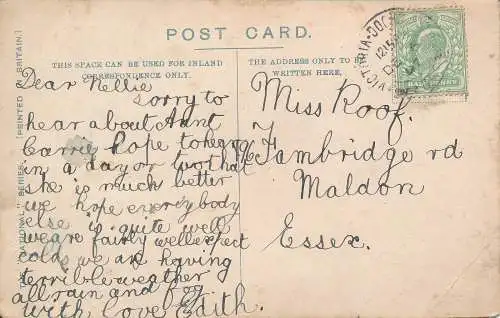 POST CARD.
THIS SPACE CAN BE USED FOR INLAND
CORRESPONDENCE ONLY.
THE ADDRESS ONLY TO BE
WRITTEN HERE.
"NATIONAL" SERIES.
PRINTED IN BRITAIN.
Dear Nellie
sorry to
hear about Aunt
Carrie hope to hear
in a day or two that
she is much better
we hope everybody
else is quite well
we are fairly well expect
colds we are having
terrible weather
all rain and fog
with love Edith.
Miss Roof.
Fambridge rd
Maldon
Essex.
TORIA·DOC
1215